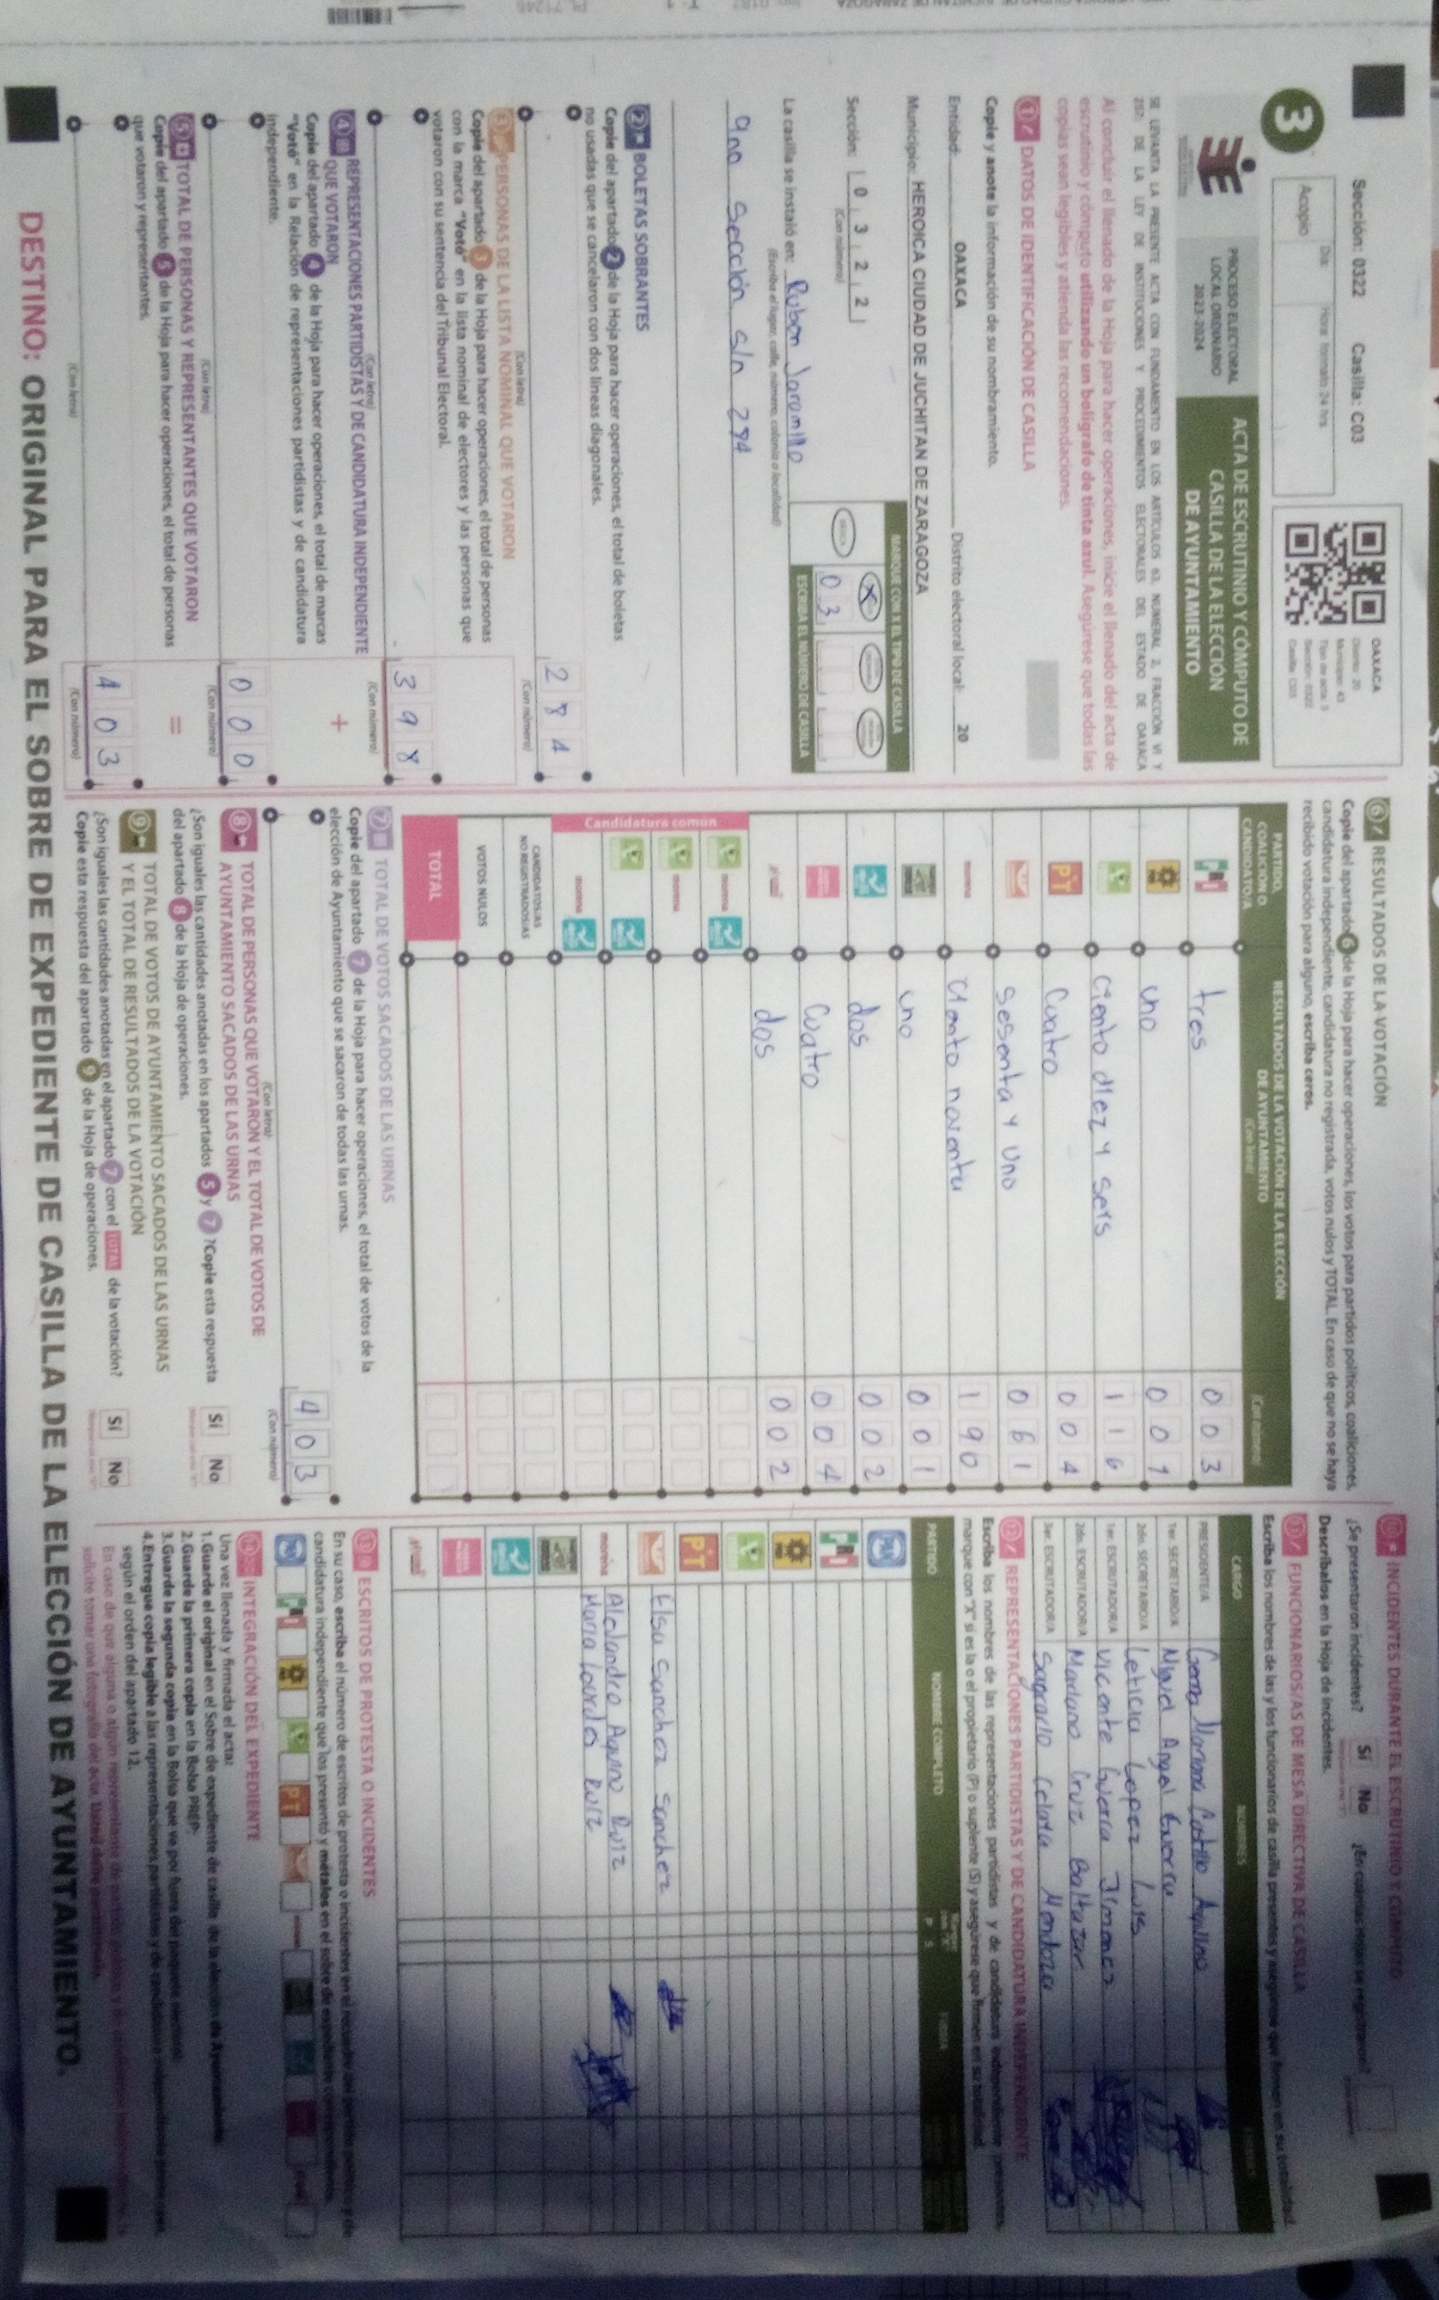 Sección: 0322 Casilla: C03
Día: Hora: formato 24 hrs
Acopio
OAXACA
Distrito: 20
Municipio: 43
Tipo de acta: 3
Sección: 0322
Casilla: C03
3
PROCESO ELECTORAL
LOCAL ORDINARIO
2023-2024
ACTA DE ESCRUTINIO Y CÓMPUTO DE
CASILLA DE LA ELECCIÓN
DE AYUNTAMIENTO
SE LEVANTA LA PRESENTE ACTA CON FUNDAMENTO EN LOS ARTÍCULOS 63, NUMERAL 2, FRACCIÓN VI Y
257; DE LA LEY DE INSTITUCIONES Y PROCEDIMIENTOS ELECTORALES DEL ESTADO DE OAXACA
Al concluir el llenado de la Hoja para hacer operaciones, inicie el llenado del acta de
escrutinio y cómputo utilizando un bolígrafo de tinta azul. Asegúrese que todas las
copias sean legibles y atienda las recomendaciones.
1 DATOS DE IDENTIFICACIÓN DE CASILLA
Copie y anote la información de su nombramiento.
Entidad: OAXACA Distrito electoral local: 20
Municipio: HEROICA CIUDAD DE JUCHITAN DE ZARAGOZA
Sección: 0 3 2 2
(Con número)
MARQUE CON X EL TIPO DE CASILLA
X
0 3
ESCRIBA EL NÚMERO DE CASILLA
La casilla se instaló en: Ruben Jaramillo
(Escriba el lugar, calle, número, colonia o localidad)
9na Sección s/n 294
2 BOLETAS SOBRANTES
Copie del apartado 2 de la Hoja para hacer operaciones, el total de boletas
no usadas que se cancelaron con dos líneas diagonales.
2 8 4
(Con letra) (Con número)
3 PERSONAS DE LA LISTA NOMINAL QUE VOTARON
Copie del apartado 3 de la Hoja para hacer operaciones, el total de personas
con la marca "Votó" en la lista nominal de electores y las personas que
votaron con su sentencia del Tribunal Electoral.
3 9 8
(Con letra) (Con número)
4 REPRESENTACIONES PARTIDISTAS Y DE CANDIDATURA INDEPENDIENTE
QUE VOTARON
Copie del apartado 4 de la Hoja para hacer operaciones, el total de marcas
"Votó" en la Relación de representaciones partidistas y de candidatura
independiente.
+
0 0 0
(Con letra) (Con número)
5 TOTAL DE PERSONAS Y REPRESENTANTES QUE VOTARON
Copie del apartado 5 de la Hoja para hacer operaciones, el total de personas
que votaron y representantes.
=
4 0 3
(Con letra) (Con número)
6 RESULTADOS DE LA VOTACIÓN
Copie del apartado 6 de la Hoja para hacer operaciones, los votos para partidos políticos, coaliciones,
candidatura independiente, candidatura no registrada, votos nulos y TOTAL. En caso de que no se haya
recibido votación para alguno, escriba ceros.
PARTIDO, COALICIÓN O CANDIDATO/A
RESULTADOS DE LA VOTACIÓN DE LA ELECCIÓN DE AYUNTAMIENTO
(Con letra) (Con número)
tres 0 0 3
uno 0 0 1
ciento diez y seis 1 1 6
PT cuatro 0 0 4
sesenta y uno 0 6 1
morena ciento noventa 1 9 0
uno 0 0 1
dos 0 0 2
cuatro 0 0 4
dos 0 0 2
Candidatura común
morena
morena
morena
CANDIDATOS/AS
NO REGISTRADOS/AS
VOTOS NULOS
TOTAL
7 TOTAL DE VOTOS SACADOS DE LAS URNAS
Copie del apartado 7 de la Hoja para hacer operaciones, el total de votos de la
elección de Ayuntamiento que se sacaron de todas las urnas.
4 0 3
(Con letra) (Con número)
8 TOTAL DE PERSONAS QUE VOTARON Y EL TOTAL DE VOTOS DE
AYUNTAMIENTO SACADOS DE LAS URNAS
¿Son iguales las cantidades anotadas en los apartados 5 y 7 ?Copie esta respuesta
del apartado 8 de la Hoja de operaciones.
Sí No
9 TOTAL DE VOTOS DE AYUNTAMIENTO SACADOS DE LAS URNAS
Y EL TOTAL DE RESULTADOS DE LA VOTACIÓN
¿Son iguales las cantidades anotadas en el apartado 7 con el TOTAL de la votación?
Copie esta respuesta del apartado 9 de la Hoja de operaciones.
Sí No
10 INCIDENTES DURANTE EL ESCRUTINIO Y CÓMPUTO
¿Se presentaron incidentes? Sí No ¿En cuántas hojas se registraron?
Descríbalos en la Hoja de incidentes.
11 FUNCIONARIOS/AS DE MESA DIRECTIVA DE CASILLA
Escriba los nombres de las y los funcionarios de casilla presentes y asegúrese que firmen en su totalidad.
CARGO NOMBRES FIRMAS
PRESIDENTE/A
1er. SECRETARIO/A Miguel Angel Guerra
2do. SECRETARIO/A Leticia Lopez Luis
1er. ESCRUTADOR/A Vicente Guerra Jimenez
2do. ESCRUTADOR/A Mariano Cruz Baltazar
3er. ESCRUTADOR/A Sagrario Celaya Mendoza
12 REPRESENTACIONES PARTIDISTAS Y DE CANDIDATURA INDEPENDIENTE
Escriba los nombres de las representaciones partidistas y de candidatura independiente presentes,
marque con "X" si es la o el propietario (P) o suplente (S) y asegúrese que firmen en su totalidad.
PARTIDO NOMBRE COMPLETO P S FIRMA
PAN
PT
Elsa Sanchez Sanchez
morena Alejandro Aquino Ruiz
Maria Lourdes Ruiz
13 ESCRITOS DE PROTESTA O INCIDENTES
En su caso, escriba el número de escritos de protesta o incidentes en el recuadro del partido político y de
candidatura independiente que los presentó y métalos en el sobre de expediente correspondiente.
14 INTEGRACIÓN DEL EXPEDIENTE
Una vez llenada y firmada el acta:
1.Guarde el original en el Sobre de expediente de casilla de la elección de Ayuntamiento.
2.Guarde la primera copia en la Bolsa PREP.
3.Guarde la segunda copia en la Bolsa que va por fuera del paquete electoral.
4.Entregue copia legible a las representaciones partidistas y de candidatura independiente presentes,
según el orden del apartado 12.
DESTINO: ORIGINAL PARA EL SOBRE DE EXPEDIENTE DE CASILLA DE LA ELECCIÓN DE AYUNTAMIENTO.